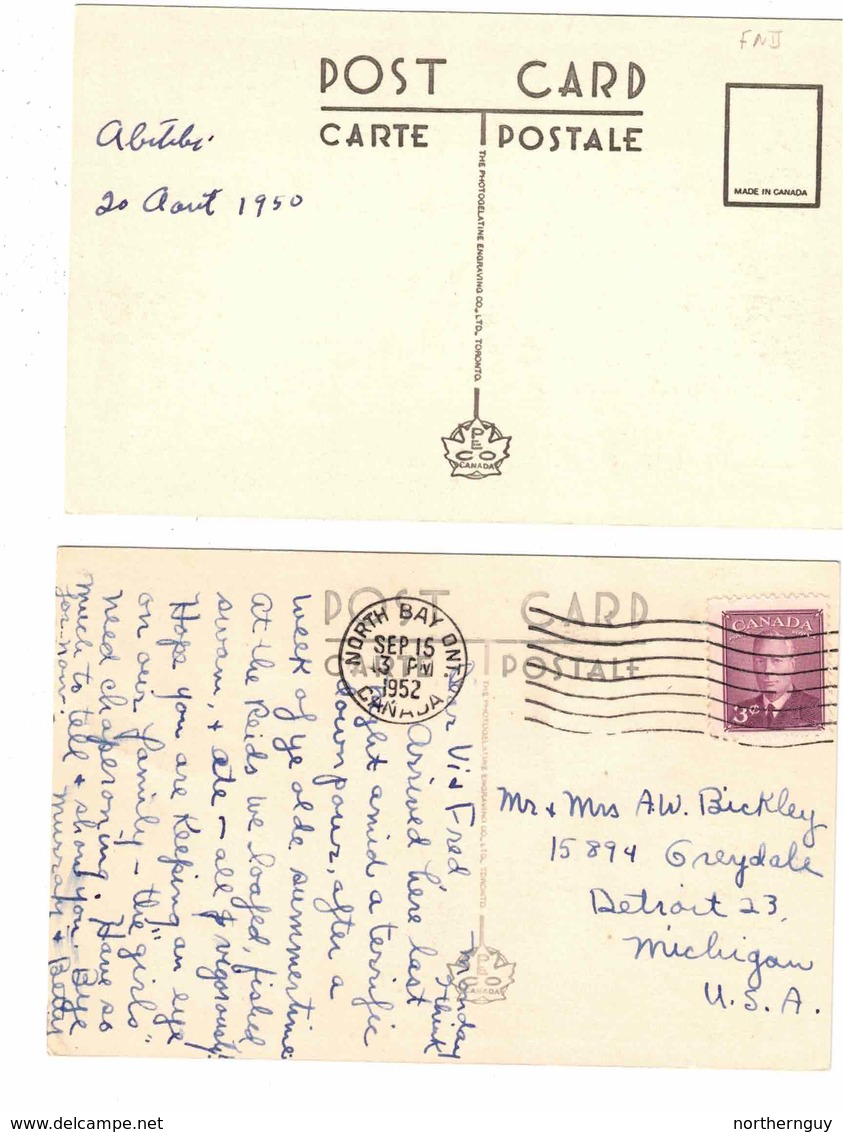 FNII
POST CARD
CARTE POSTALE
Abitibi
20 Aout 1950
MADE IN CANADA
THE PHOTOGELATINE ENGRAVING CO., LTD., TORONTO.
PECO
CANADA
POST CARD
CARTE POSTALE
NORTH BAY ONT.
SEP 15
13 PM
1952
CANADA
CANADA
3¢
THE PHOTOGELATINE ENGRAVING CO., LTD. TORONTO.
PECO
CANADA
Monday
I think
Dear Vi & Fred
Arrived here last
night amid a terrific
downpour, after a
week of ye olde summertime
at the Reids we loafed, fished
swam, & ate - all vigorously.
Hope you are keeping an eye
on our family - the "girls"
need chaperoning. Have so
much to tell & show you. Bye
for now.
Murray & Betty
Mr & Mrs A.W. Bickley
15894 Greydale
Detroit 23,
Michigan
U.S.A.
northernguy
delcampe.net